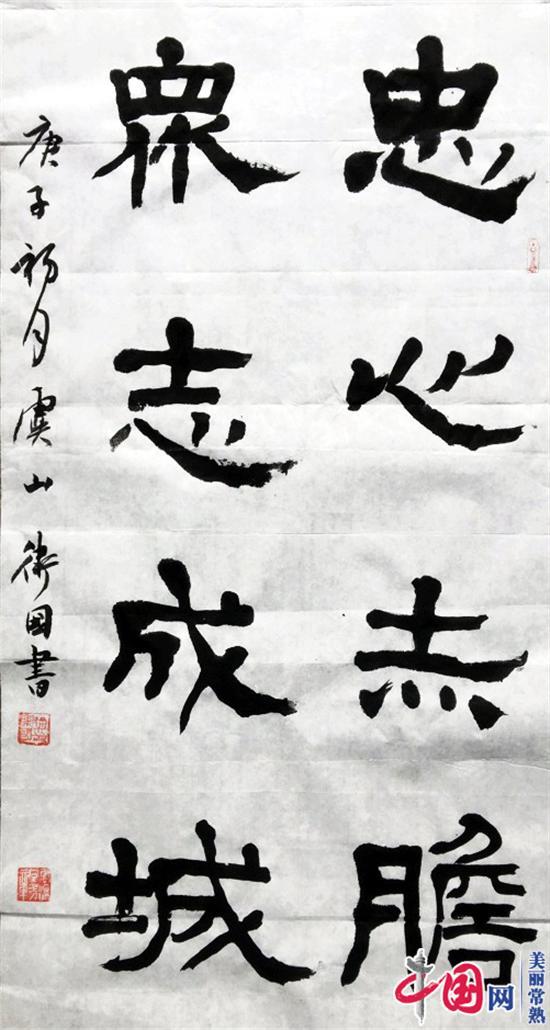 忠心赤膽
衆志成城
庚子初月虞山衛國書
中国网
美丽常熟